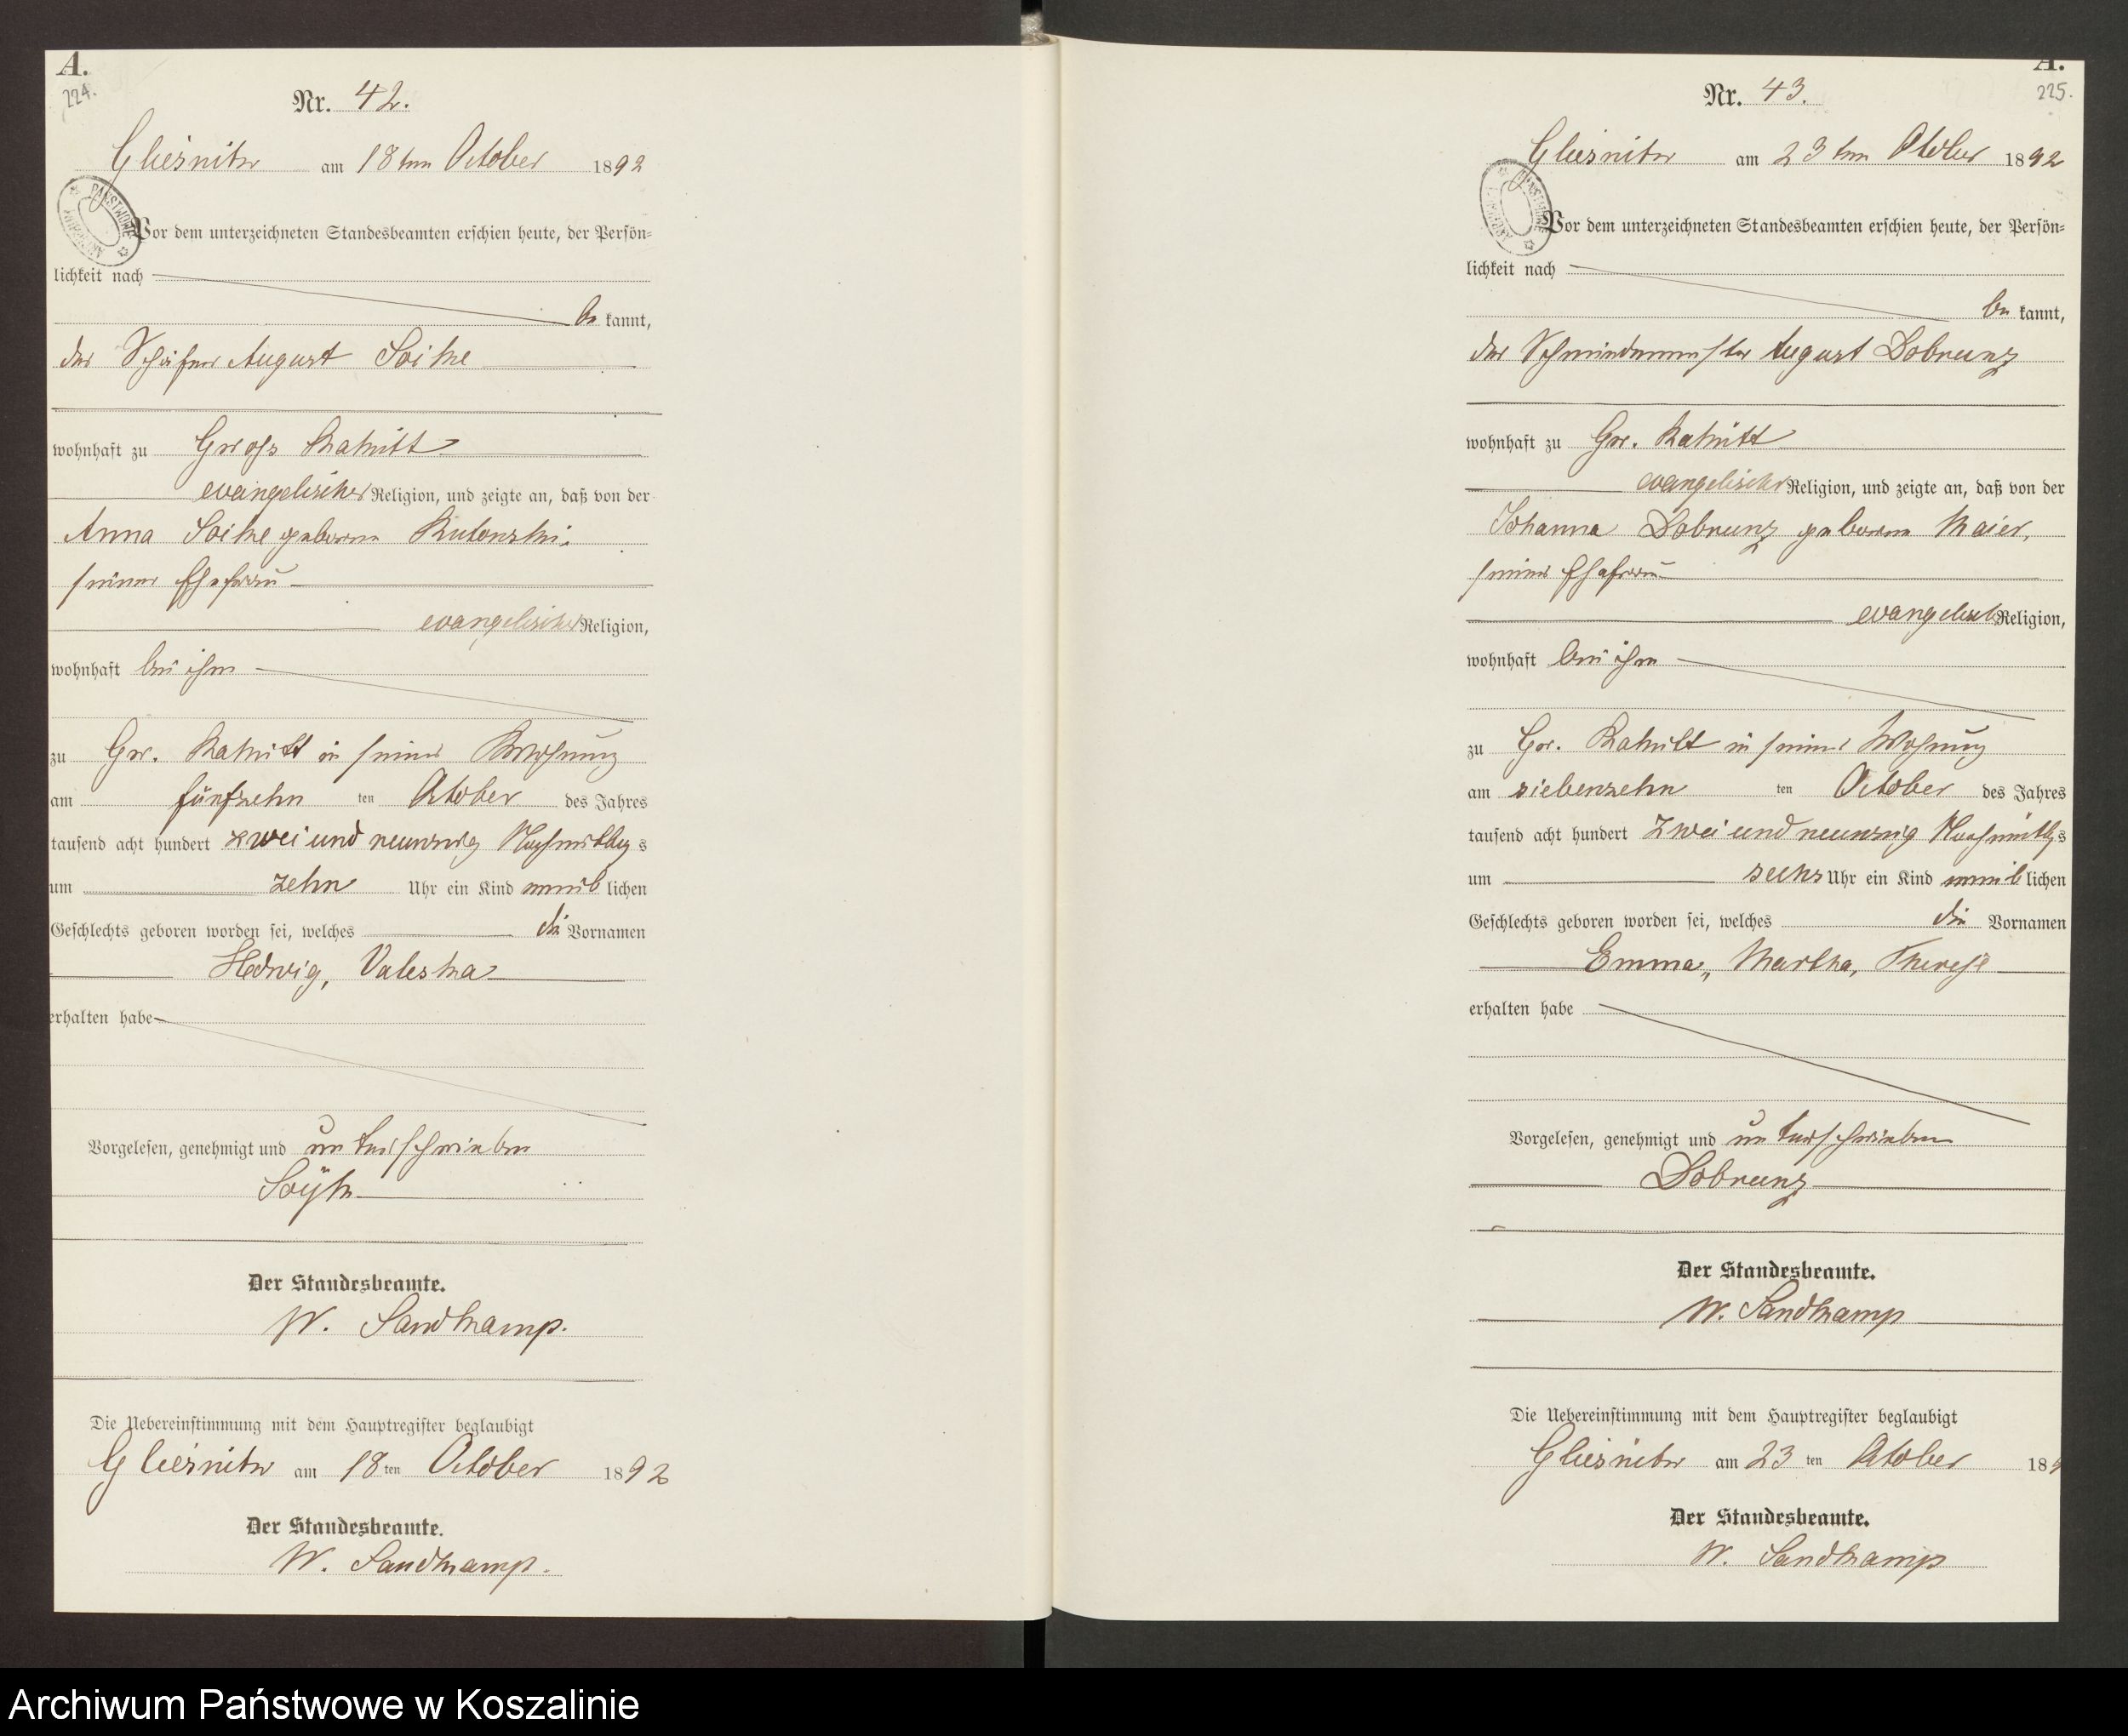 A.
224.
Nr. 42.
Gliesnitz am 18ten October 1892
Vor dem unterzeichneten Standesbeamten erschien heute, der Persön=
lichkeit nach
be kannt,
der Schäfer August Soike
wohnhaft zu Gross Rakitt
evangelischer Religion, und zeigte an, daß von der
Anna Soike geborene
seiner Ehefrau
evangelischer Religion,
wohnhaft bei ihm
zu Gr. Rakitt in seiner Wohnung
am fünfzehn ten October des Jahres
tausend acht hundert zwei und neunzig Nachmittags
um zehn Uhr ein Kind weib lichen
Geschlechts geboren worden sei, welches die Vornamen
Hedwig, Valeska
erhalten habe
Vorgelesen, genehmigt und unterschrieben
Der Standesbeamte.
W. Sandkamp.
Die Uebereinstimmung mit dem Hauptregister beglaubigt
Gliesnitz am 18 ten October 1892
Der Standesbeamte.
W. Sandkamp.
A.
225.
Nr. 43.
Gliesnitz am 23ten October 1892
Vor dem unterzeichneten Standesbeamten erschien heute, der Persön=
lichkeit nach
be kannt,
der Schmiedemeister August Dobrunz
wohnhaft zu Gr. Rakitt
evangelischer Religion, und zeigte an, daß von der
Johanna Dobrunz geborene Maier,
seiner Ehefrau
evangelisch Religion,
wohnhaft bei ihm
zu Gr. Rakitt in seiner Wohnung
am siebenzehn ten October des Jahres
tausend acht hundert zwei und neunzig Nachmittgs
um sechs Uhr ein Kind weib lichen
Geschlechts geboren worden sei, welches die Vornamen
Emma, Martha, Therese
erhalten habe
Vorgelesen, genehmigt und unterschrieben
Dobrunz
Der Standesbeamte.
W. Sandkamp
Die Uebereinstimmung mit dem Hauptregister beglaubigt
Gliesnitz am 23 ten October 189
Der Standesbeamte.
W. Sandkamp
Archiwum Państwowe w Koszalinie